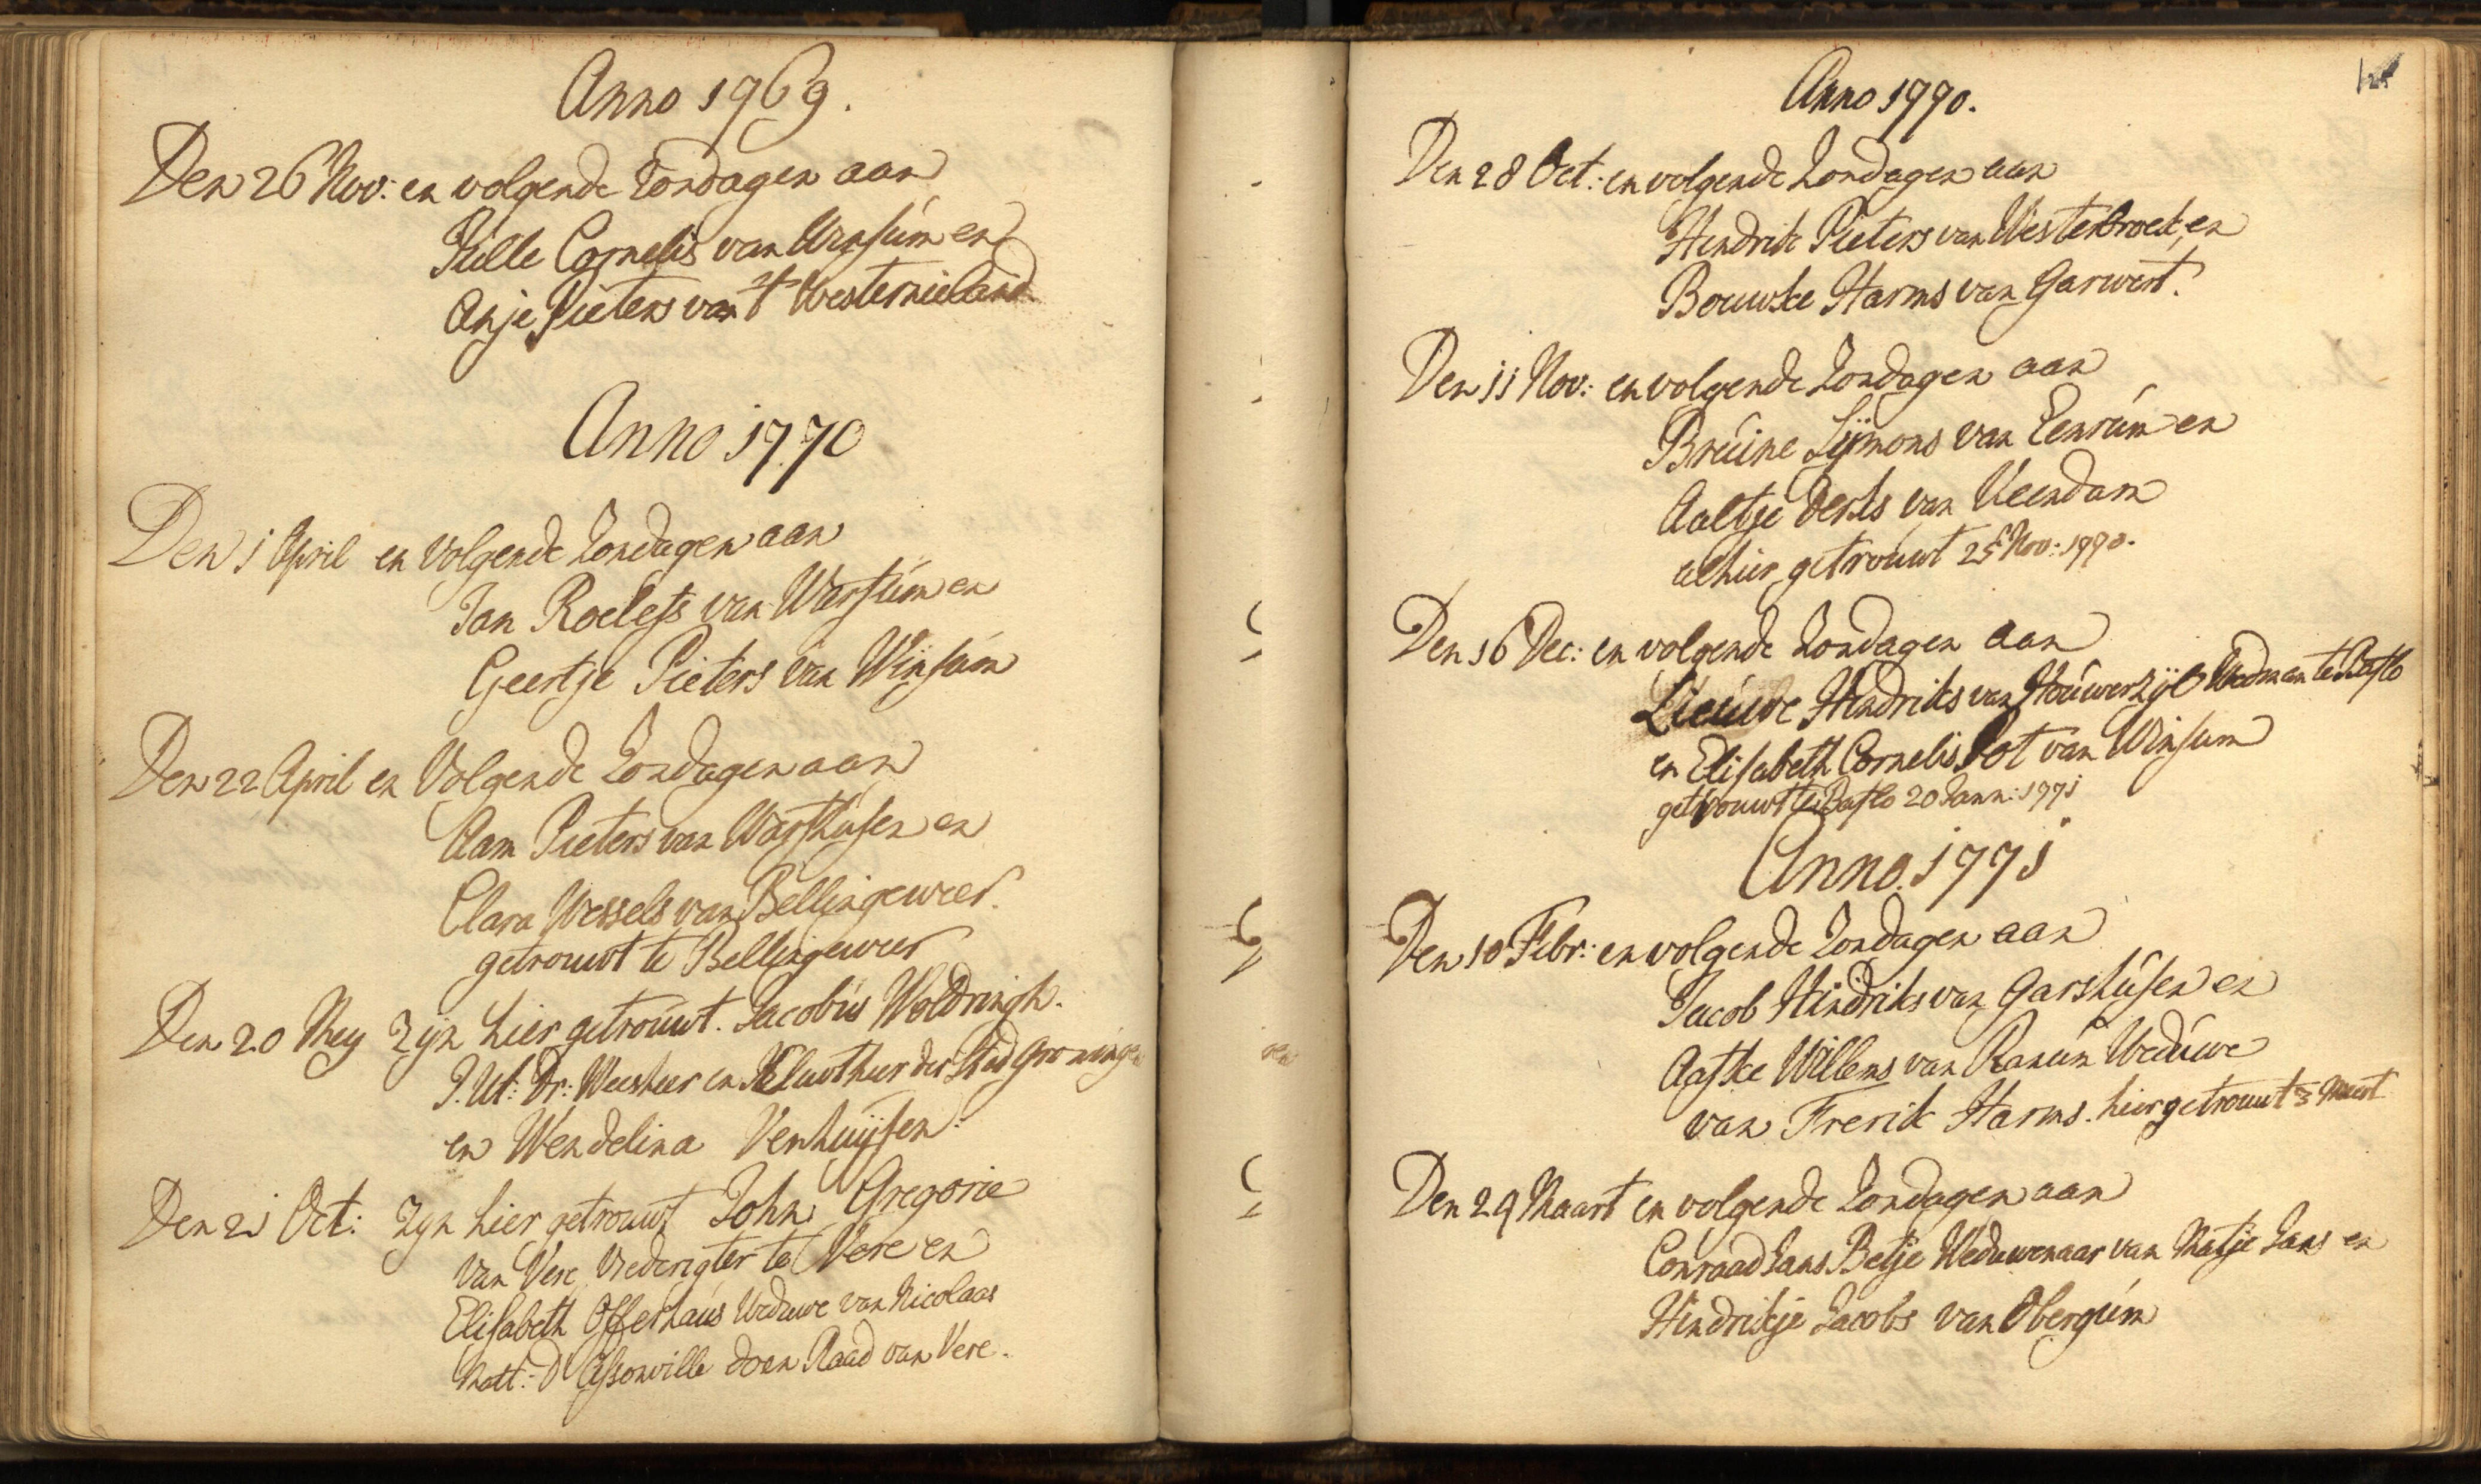 Anno 1769.
Den 26 Nov: en volgende Zondagen aan
Jille Cornelis van Winsúm en
Anje Pieters van 't Westernieland
Anno 1770
Den 1 April en volgende Zondagen aan
Jan Roelefs van Warfúm en
Geertje Pieters van Winsúm
Den 22 April en Volgende Zondagen aan
Aam Pieters van Warfhúsen en
Clara Wessels van Bellingeweer.
getrouwt te Bellingeweer
Den 20 Mey Zijn hier getroúwt. Jacobús Woldringh.
J. Ut: Dr: Weesheer en Kluftheer der Stad Groningen
en Wendelina Venhuijsen.
Den 21 Oct: Zyn hier getrouwt John Gregorie
van Vere Vrederigter te Vere en
Elisabeth Offerhaús Weduwe van Nicolaas
Matt: D'Assonville doen Raad van Vere.
Anno 1770.
Den 28 Oct: en volgende Zondagen aan
Hendrik Pieters van Westerbroek en
Bouwke Harms van Garwert.
Den 11 Nov: en volgende Zondagen aan
Brúine Sijmons van Eenrúm en
Aaltje Derks van Veendam
alhier getrouwt 25 Nov: 1770.
Den 16 Dec: en volgende Zondagen aan
Lieúwe Hindriks van Hoúwerzijl Wedman te Baflo
en Elisabeth Cornelis Pot van Winsum
getrouwt te Baflo 20 Jann: 1771
Anno 1771
Den 10 Febr: en volgende Zondagen aan
Jacob Hindriks van Garshúsen en
Aafke Willems van Ranúm Wedúwe
van Frerik Harms. hier getrouwt 3 Maert
Den 29 Maart en volgende Zondagen aan
Conraad Jans Betje Weduwenaar van Matje Jans en
Hindrikje Jacobs van Obergúm